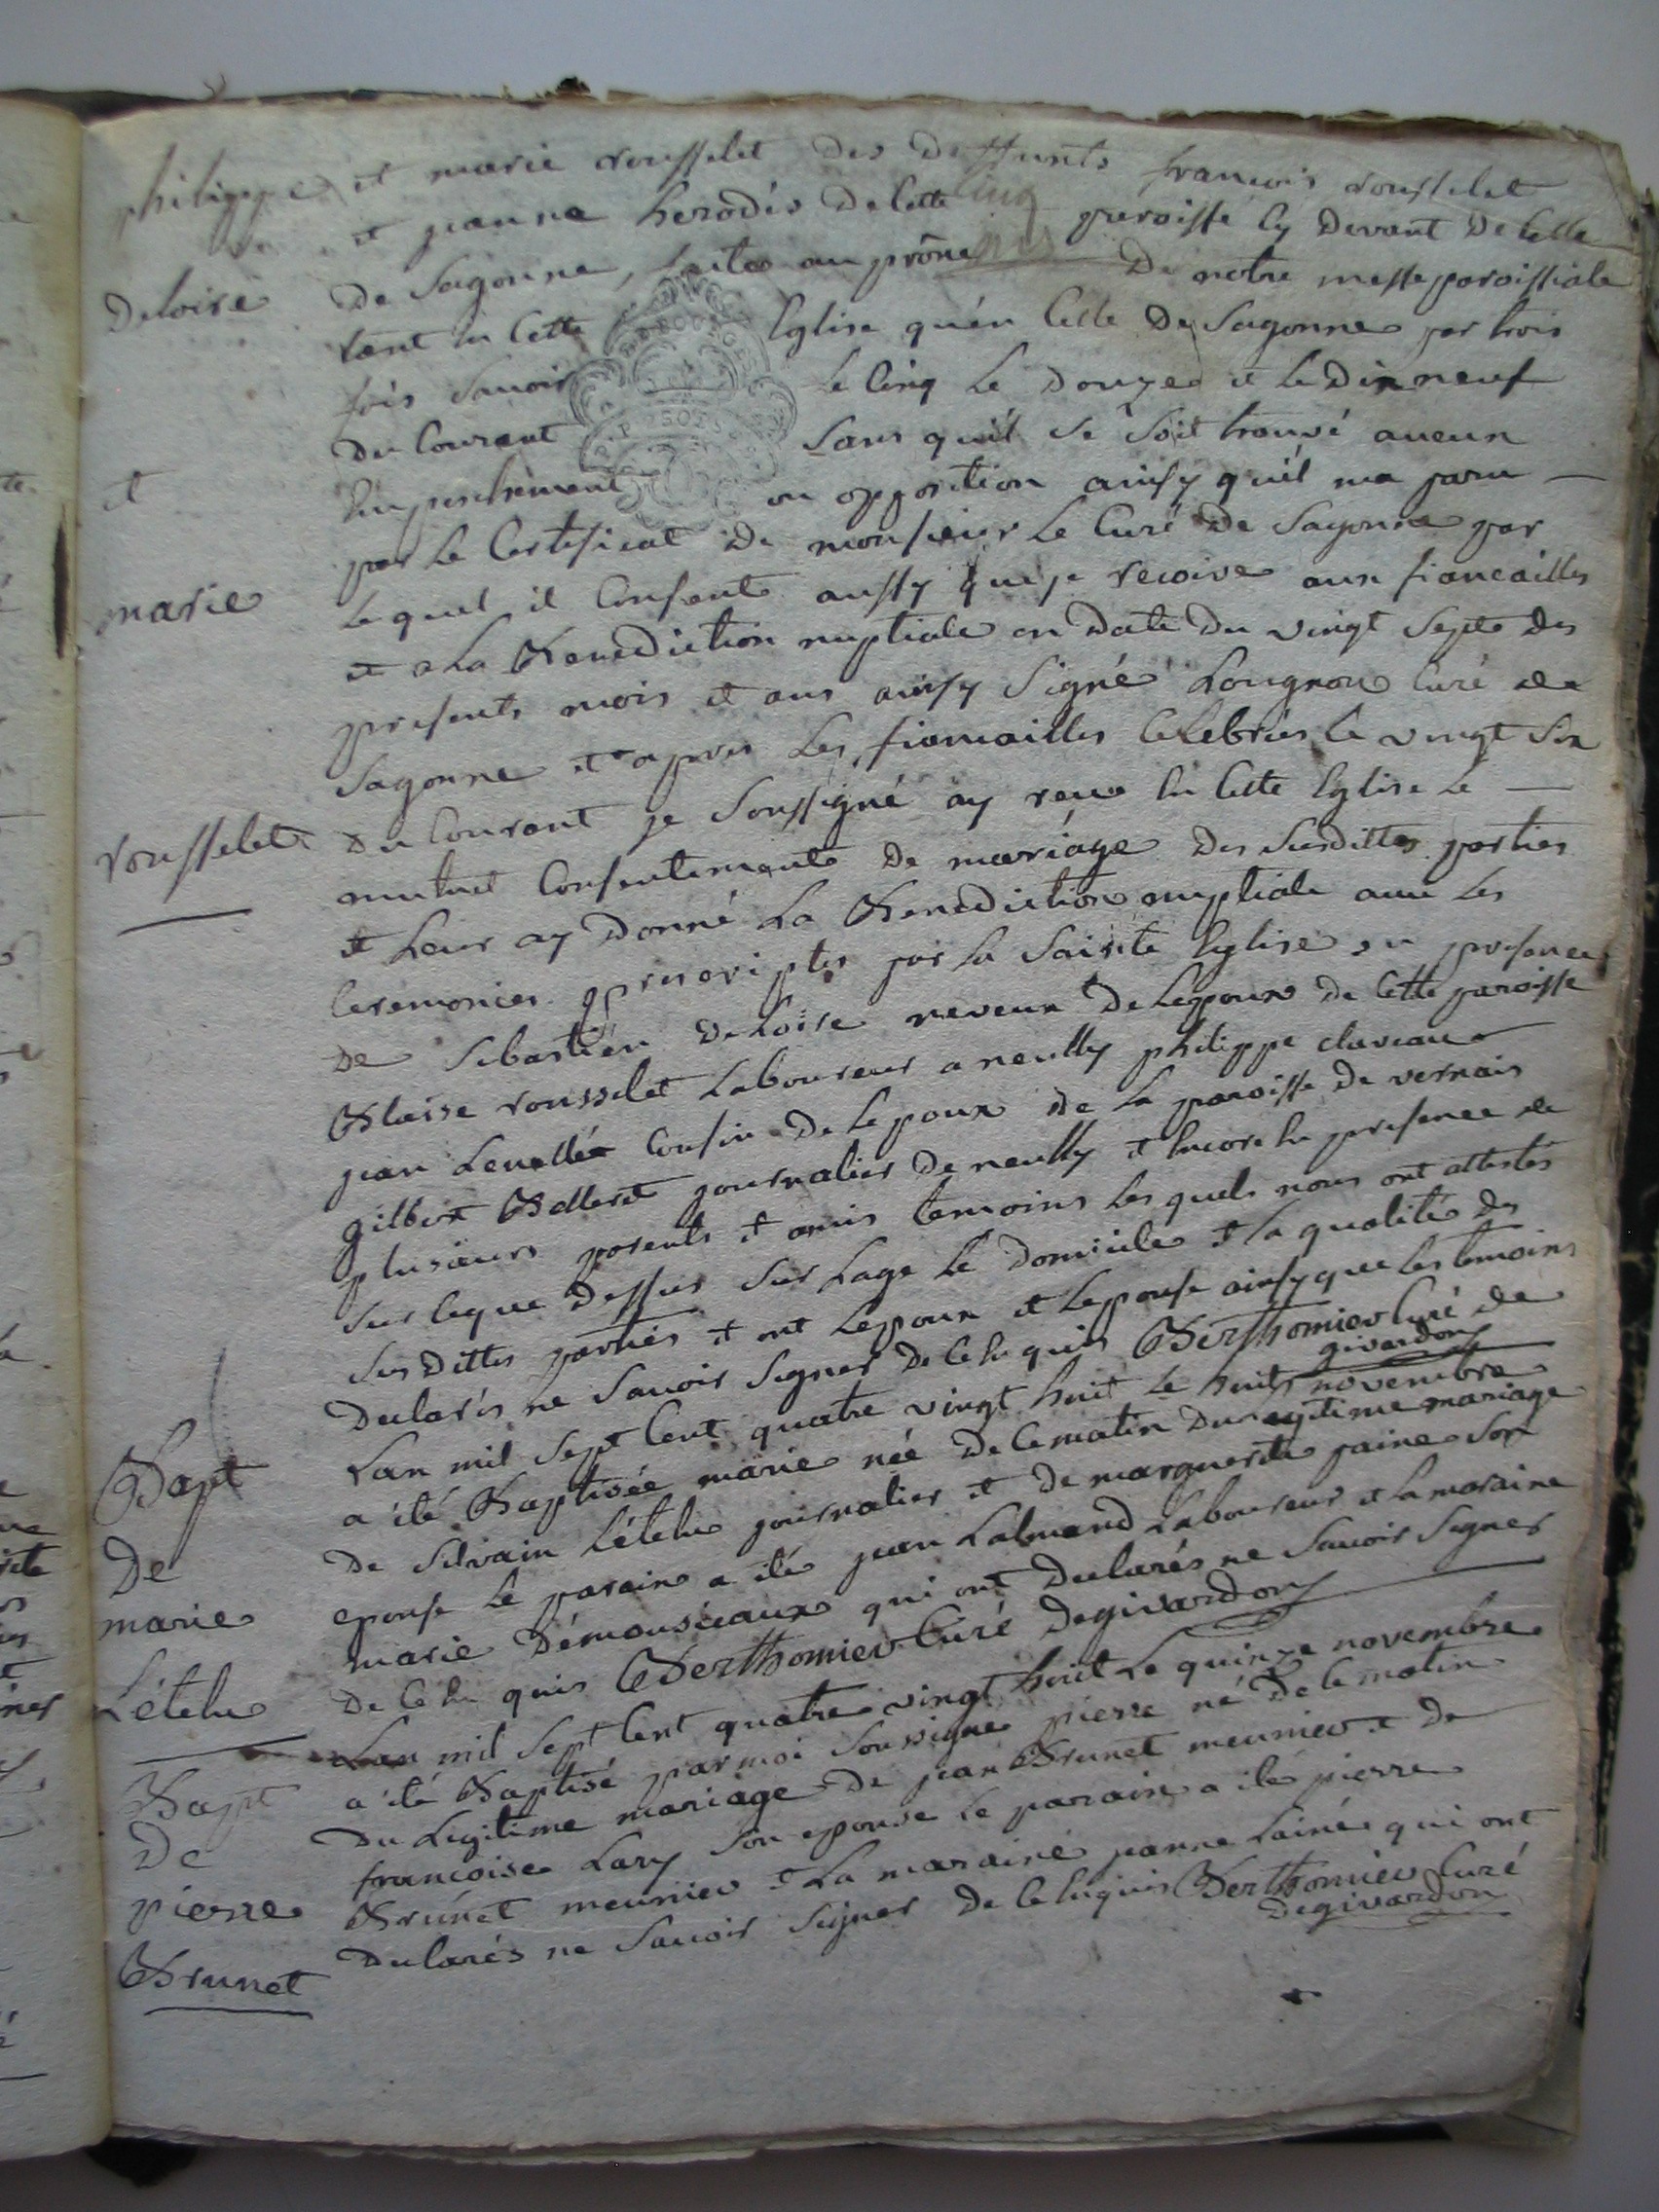 philippe
et marie rousselet des deffunts francois rousselet
et jeanne herodés de cette paroisse cy devant de celle
Deloire
de Sagonne, faites au prône de notre messe paroissiale
tant en cette Eglise qu'en celle de Sagonne par trois
fois savoir le cinq le douze et le dix neuf
du courant sans qu'il se soit trouvé aucun
et
Empechement ou opposition ainsy qu'il ma paru
par le Certificat de monsieur le Curé de Sagonne par
marie
lequel il Consent aussy que je recoive aux fiancailles
et a la Benediction nuptiale en date du vingt sept des
presents mois et ans ainsy Signé Lougnon Curé de
Sagonne et apres les fiancailles celebriés le vingt six
rousselet
du courant je soussigné ay recu en cette Eglise le
mutuel Consentement de mariage des susdittes parties
et leur ay donné la Benediction nuptiale avec les
Ceremonies prescriptes par la Sainte Eglise en presence
de Sebastien Deloire neveux de Lepoux de cette paroisse
Blaise rousselet Laboureur a neully philippe claveau
jean Levallée Cousin de Lepoux de la paroisse de vernais
gilbert Belleret journalier de neully et Encore en presence de
plusieurs parents et amis temoins les quels nous ont attestés
sur ceque dessus sur Lage le domicile et la qualité des
susdittes parties et ont Lepoux et Lepouse ainsy que les temoins
declarés ne savoir signer de ce enquis Berthomier Curé de
givardon
Bapt
Lan mil sept cent quatre vingt huit le huit novembre
a été Baptisée marie née de ce matin du legitime mariage
De
de Silvain Lételu journalier et de marguerite jaine son
epouse le parain a été jean Lalmand Laboureur et la maraine
marie
marie Démousseaux qui ont declarés ne savoir signer
de ce en quis Berthomier Curé degivardon
Lételu
Lan mil sept cent quatre vingt huit le quinze novembre
a été Baptisé par moi soussigné pierre né de ce matin
Bapt
du Legitime mariage de jean Brunet meunier et de
De
francoise Lary son epouse le parain a été pierre
pierre
Brunet meunier et La maraine jeanne Lainé qui ont
declarés ne savoir signer de ce enquis Berthomier Curé
degivardon
Brunet